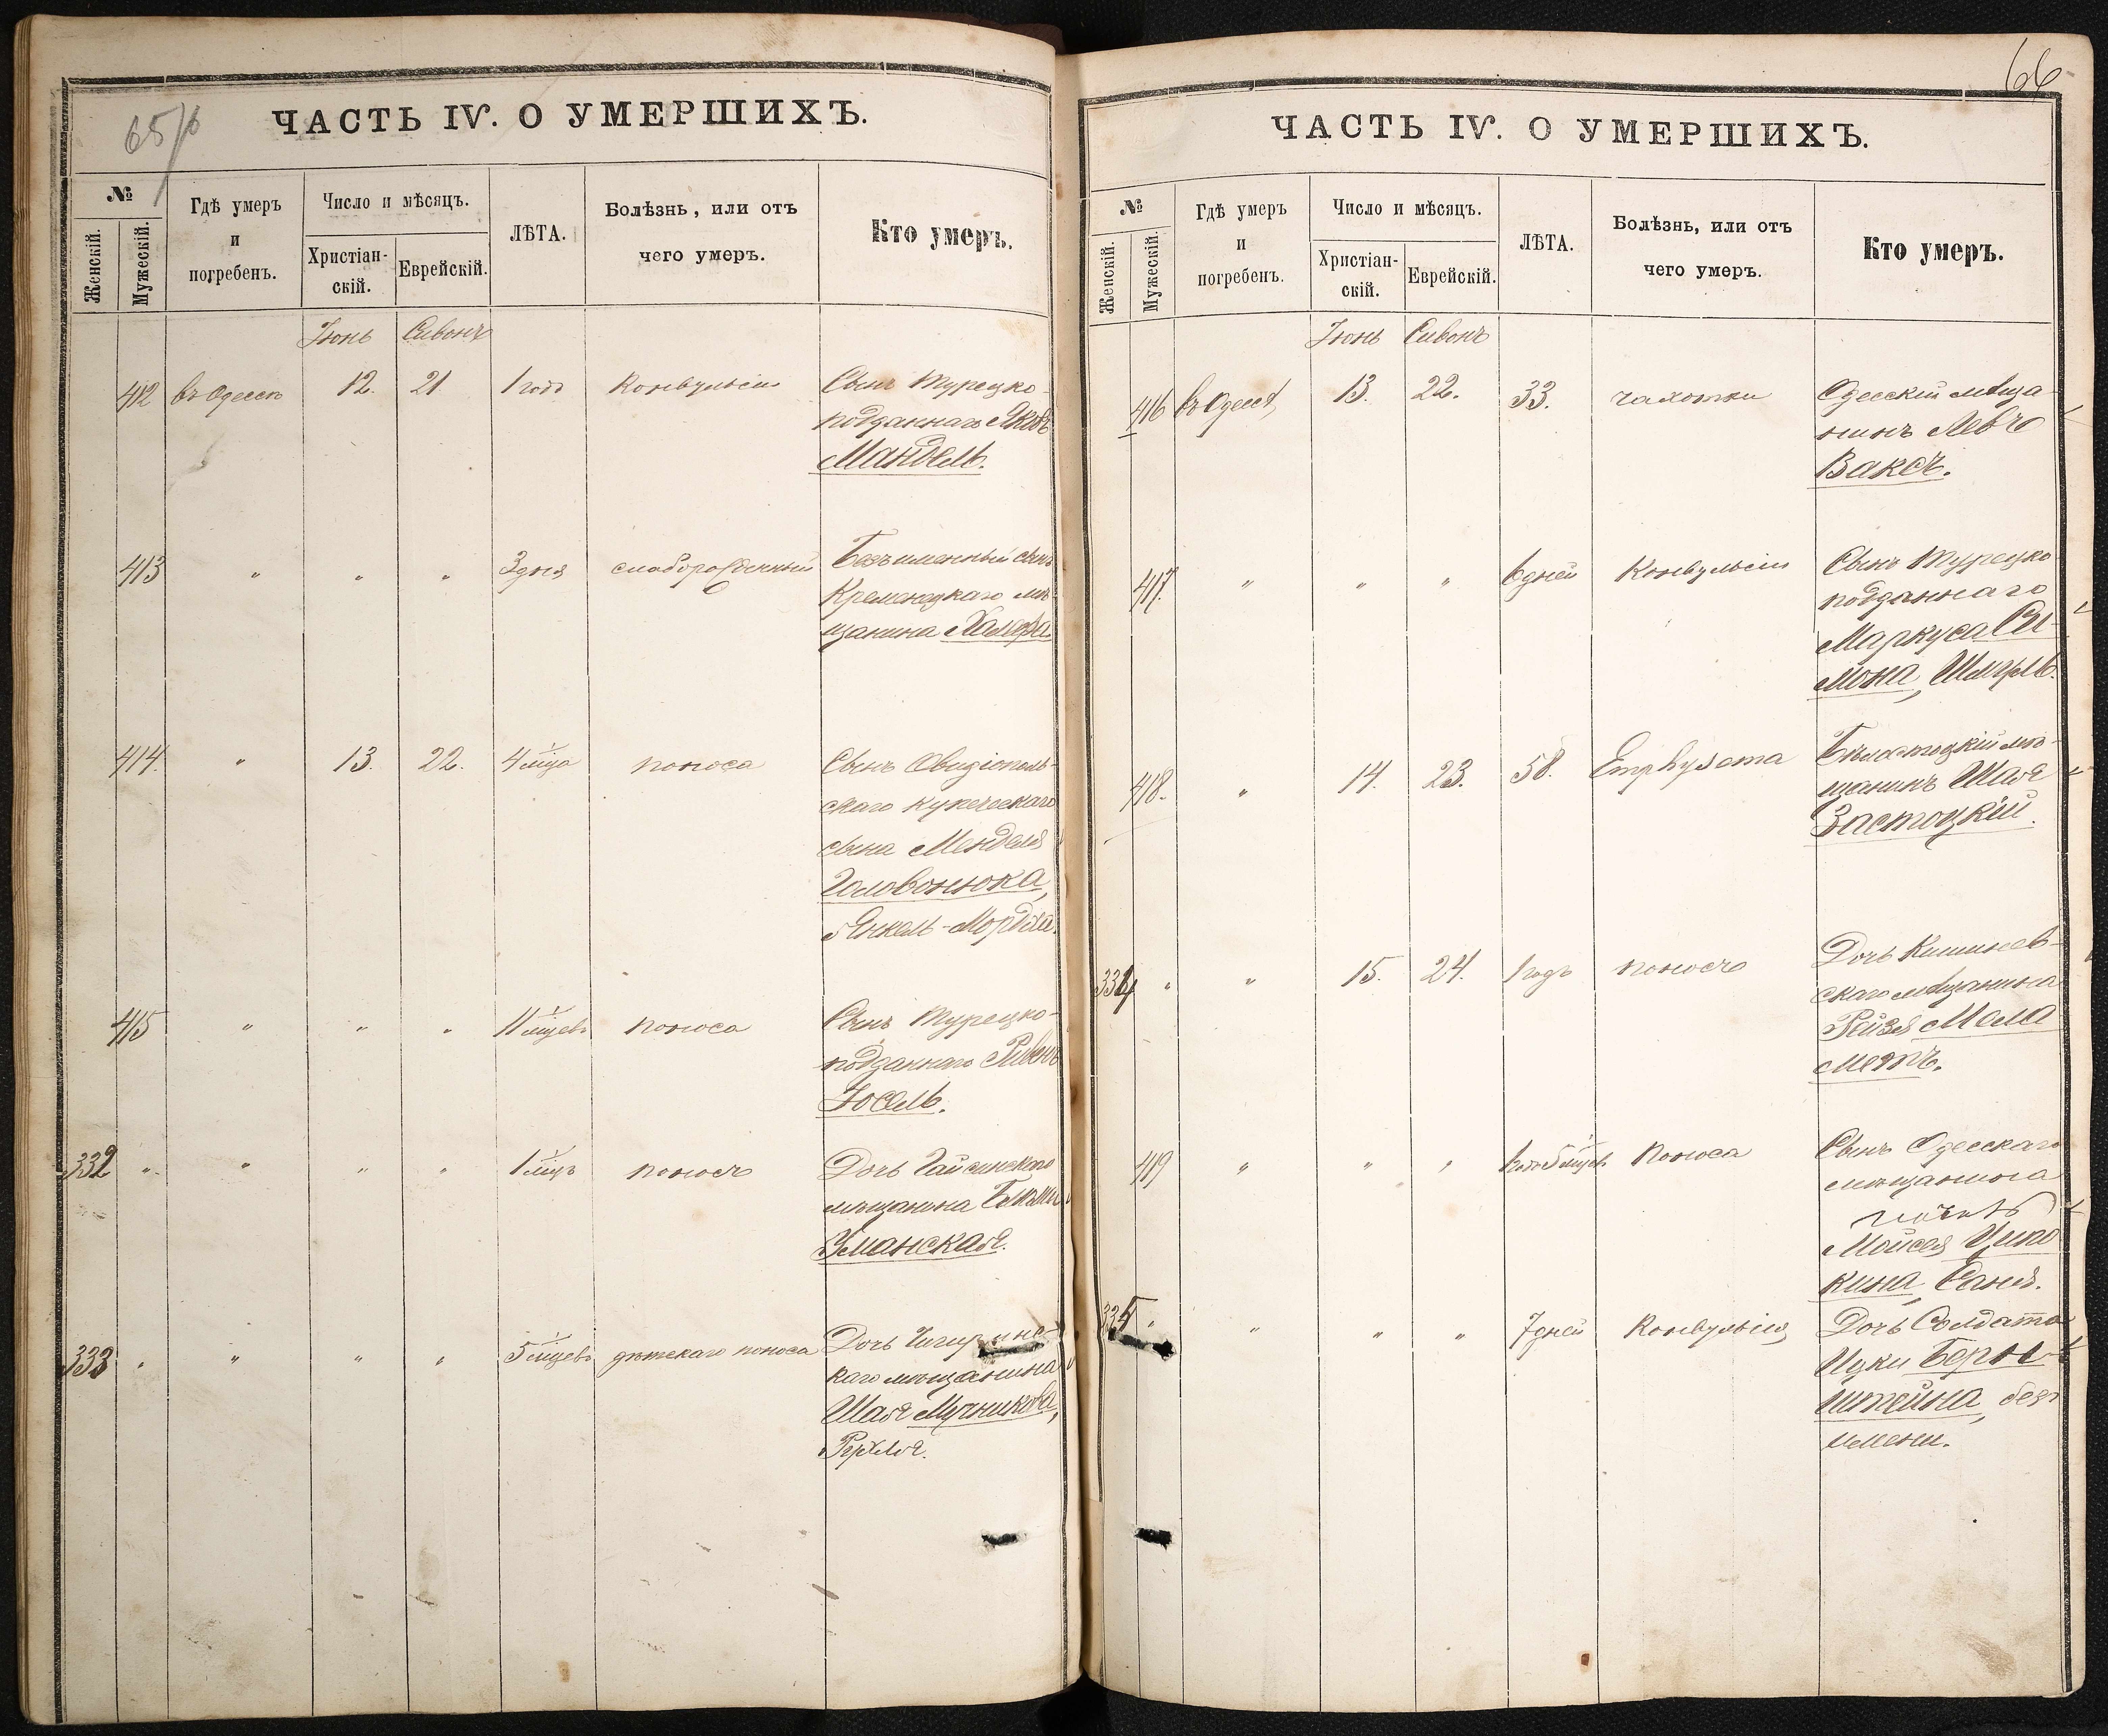 65/6
ЧАСТЬ IV. О УМЕРШИХЪ.
№
Женскій.
Мужескій.
Гдѣ умеръ
и
погребенъ.
Число и мѣсяцъ.
Христіан-
скій.
Еврейскій.
ЛѢТА.
Болѣзнь, или отъ
чего умеръ.
Кто умеръ.
Іюнь Сивонъ
412 въ Одессѣ 12. 21 1 годъ Конвульсіи Сынъ Турецко-
подданнаго Яковъ
Мандель.
413 " " " 3 дня слаборожденный Безъименный сынъ
Кременецкаго мѣ-
щанина
414. " 13. 22. 4 мѣсца поноса Сынъ Овидіополь-
скаго купеческаго
сына Менделя
Головонюка,
Янкель-Мордха.
415 " " " 11 мѣсцевъ поноса Сынъ Турецко-
подданнаго Ривенъ
Іосель.
332 " " " " 1 мѣсцъ поноса Дочь Гайсинскаго
мѣщанина
Уманская.
333 " " " " 5 мѣсцевъ дѣтскаго поноса Дочь Чигиринс-
каго мѣщанина
Шая Мучникова,
Рухля.
66
ЧАСТЬ IV. О УМЕРШИХЪ.
№
Женскій.
Мужескій.
Гдѣ умеръ
и
погребенъ.
Число и мѣсяцъ.
Христіан-
скій.
Еврейскій.
ЛѢТА.
Болѣзнь, или отъ
чего умеръ.
Кто умеръ.
Іюнь Сивонъ
416 въ Одессѣ 13. 22. 33. чахотки Одесскій мѣща-
нинъ Левъ
Ваксъ.
417. " " " 6 дней Конвульсіи Сынъ Турецко
подданнаго
Маркуса Си-
мона, Шмуль.
418. " 14. 23. 58. Emphysema Бѣлостоцкій мѣ-
щанинъ Шая
Застоцкій.
334 " " 15. 24. 1 годъ поноса Дочь Кишинев-
скаго мѣщанина
Рейзя Мела
медъ.
419 " " " 1 годъ 5 мѣсцев. Поноса Сынъ Одесскаго
мѣщанина
Мойсея Ципо
кина, Саня.
335 " " " " 7 дней Конвульсіи Дочь Солдата
Ицки Берн-
штейна, безъ
имени.